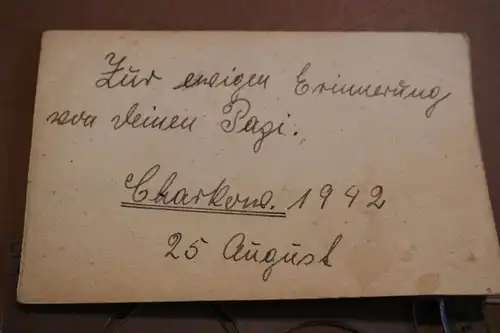 Zur ewigen Erinnerung
von deinen Pagi.
Charkow. 1942
25 August